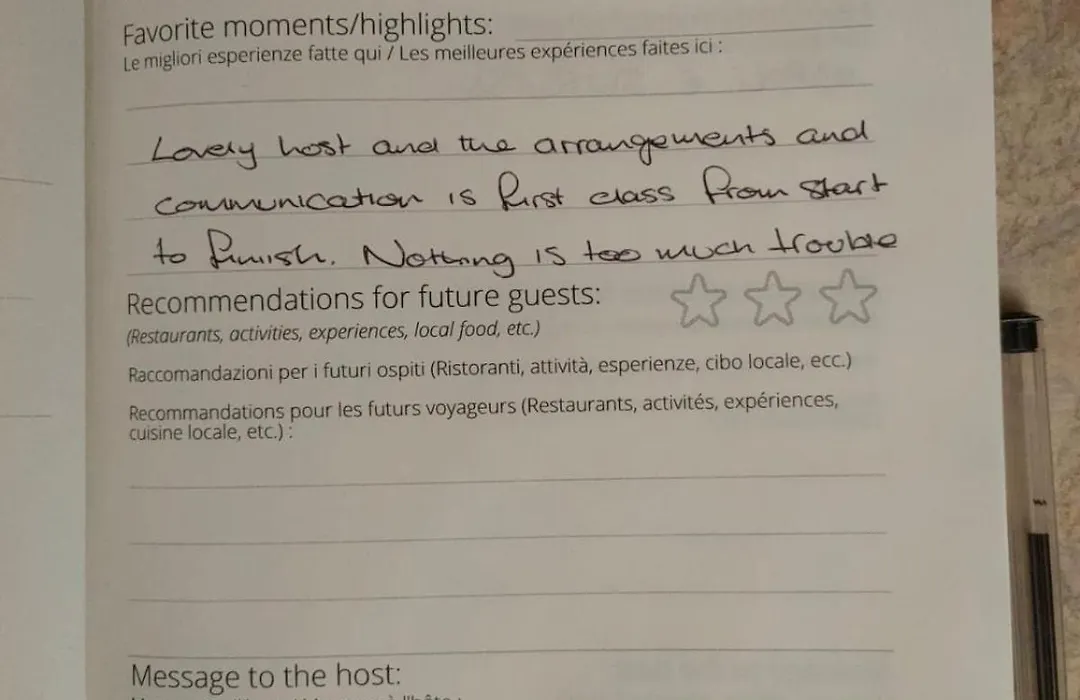 Favorite moments/highlights:
Le migliori esperienze fatte qui / Les meilleures expériences faites ici :
Lovely host and the arrangements and
communication is first class from start
to finish. Nothing is too much trouble
Recommendations for future guests:
(Restaurants, activities, experiences, local food, etc.)
Raccomandazioni per i futuri ospiti (Ristoranti, attività, esperienze, cibo locale, ecc.)
Recommandations pour les futurs voyageurs (Restaurants, activités, expériences,
cuisine locale, etc.) :
Message to the host: